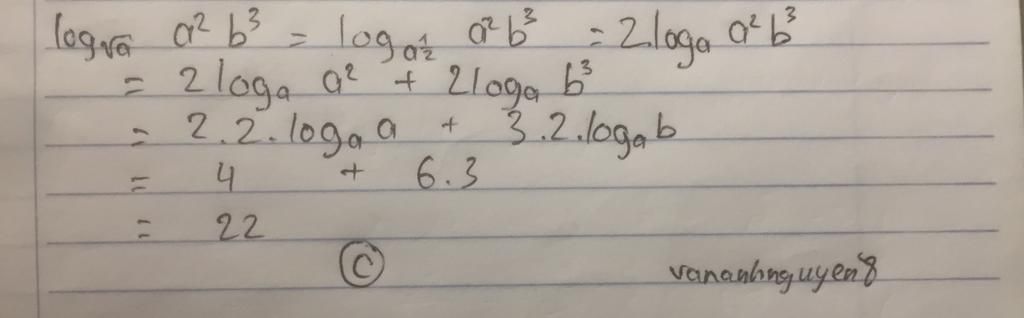 log√a a² b³ = log_a^½ a²b³ = 2log_a a²b³
= 2log_a a² + 2log_a b³
= 2.2.log_a a + 3.2.log_a b
= 4 + 6.3
= 22
C
vananhnguyen8